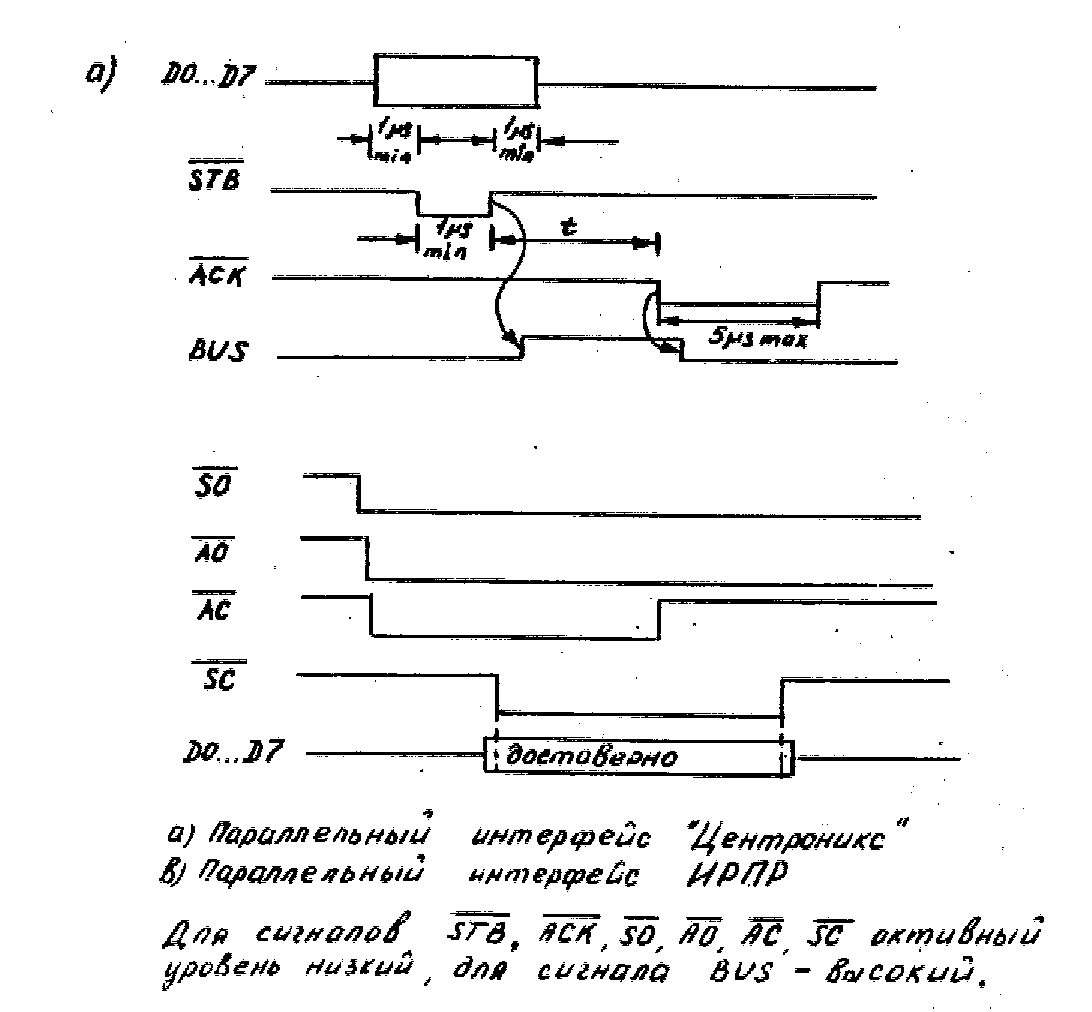 а) D0...D7
1μs min 1μs min
S̅T̅B̅
1μs min t
A̅C̅K̅
5μs max
BUS
S̅O̅
A̅O̅
A̅C̅
S̅C̅
D0...D7 достоверно
а) Параллельный интерфейс "Центроникс"
в) Параллельный интерфейс ИРПР
Для сигналов S̅T̅B̅, A̅C̅K̅, S̅O̅, A̅O̅, A̅C̅, S̅C̅ активный
уровень низкий, для сигнала BUS - высокий.